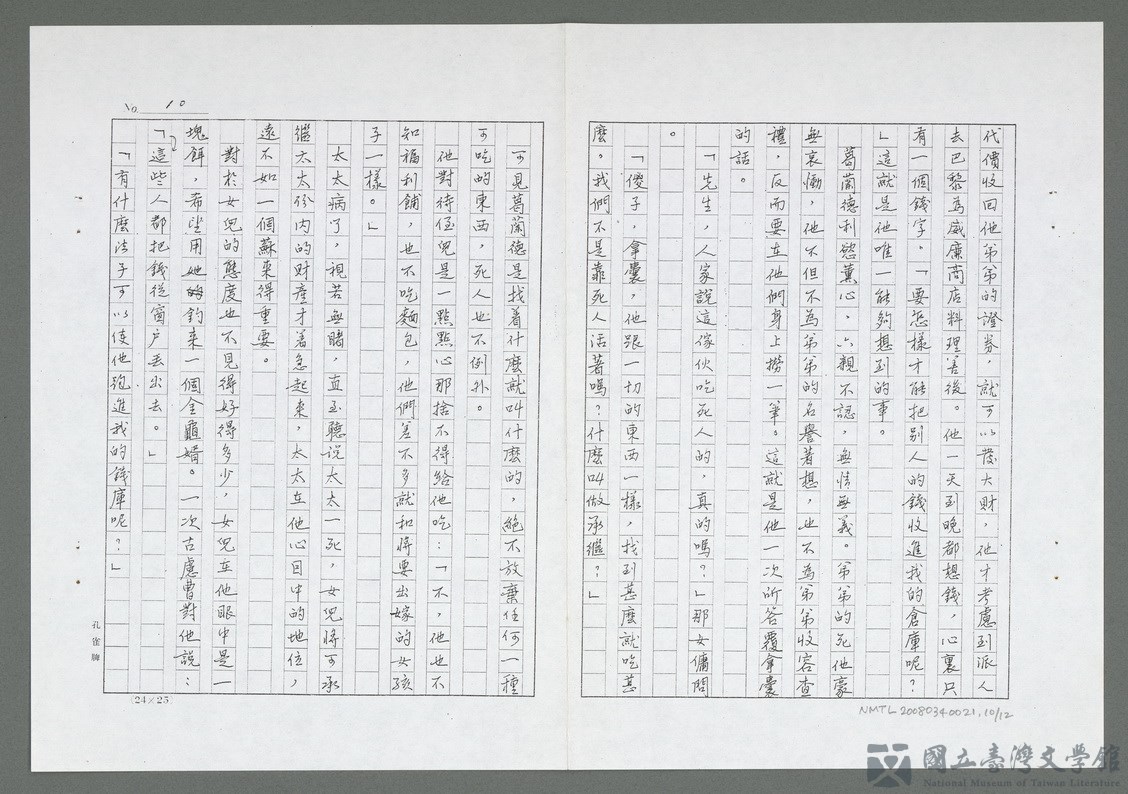 代價收回他弟弟的證券，就可以發大財，他才考慮到派人
去巴黎為威廉商店料理善後。他一天到晚都想錢，心裏只
有一個錢字。「要怎樣才能把別人的錢收進我的倉庫呢？
」這就是他唯一能夠想到的事。
葛蘭德利慾薰心，六親不認，無情無義。弟弟的死他毫
無哀慟，他不但不為弟弟的名譽著想，也不為弟弟收容查
禮，反而要在他們身上撈一筆。這就是他一次所答覆拿囊
的話。
「先生，人家說這傢伙吃死人的，真的嗎？」那女傭問
。
「傻子，拿囊，他跟一切的東西一樣，找到甚麼就吃甚
麼。我們不是靠死人活著嗎？什麼叫做承繼？」
可見葛蘭德是找着什麼就叫什麼的，絕不放棄任何一種
可吃的東西，死人也不例外。
他對待侄兒是一點點心那捨不得給他吃：「不，他也不
知福利餔，也不吃麵包，他們差不多就和將要出嫁的女孩
子一樣。」
太太病了，視若無睹，直至聽说太太一死，女兒將可承
繼太太份內的財產才着急起來，太太在他心目中的地位，
遠不如一個蘇來得重要。
對於女兒的態度也不見得好得多少，女兒在他眼中是一
塊餌，希望用她釣來一個金龜婿。一次古慮曹對他說：
「這些人都把錢從窗戶丟出去。」
「有什麼法子可以使他跑進我的錢庫呢？」
No 10
孔雀牌
(24×25)
NMTL20080340021,10/12
國立臺灣文學館
National Museum of Taiwan Literature